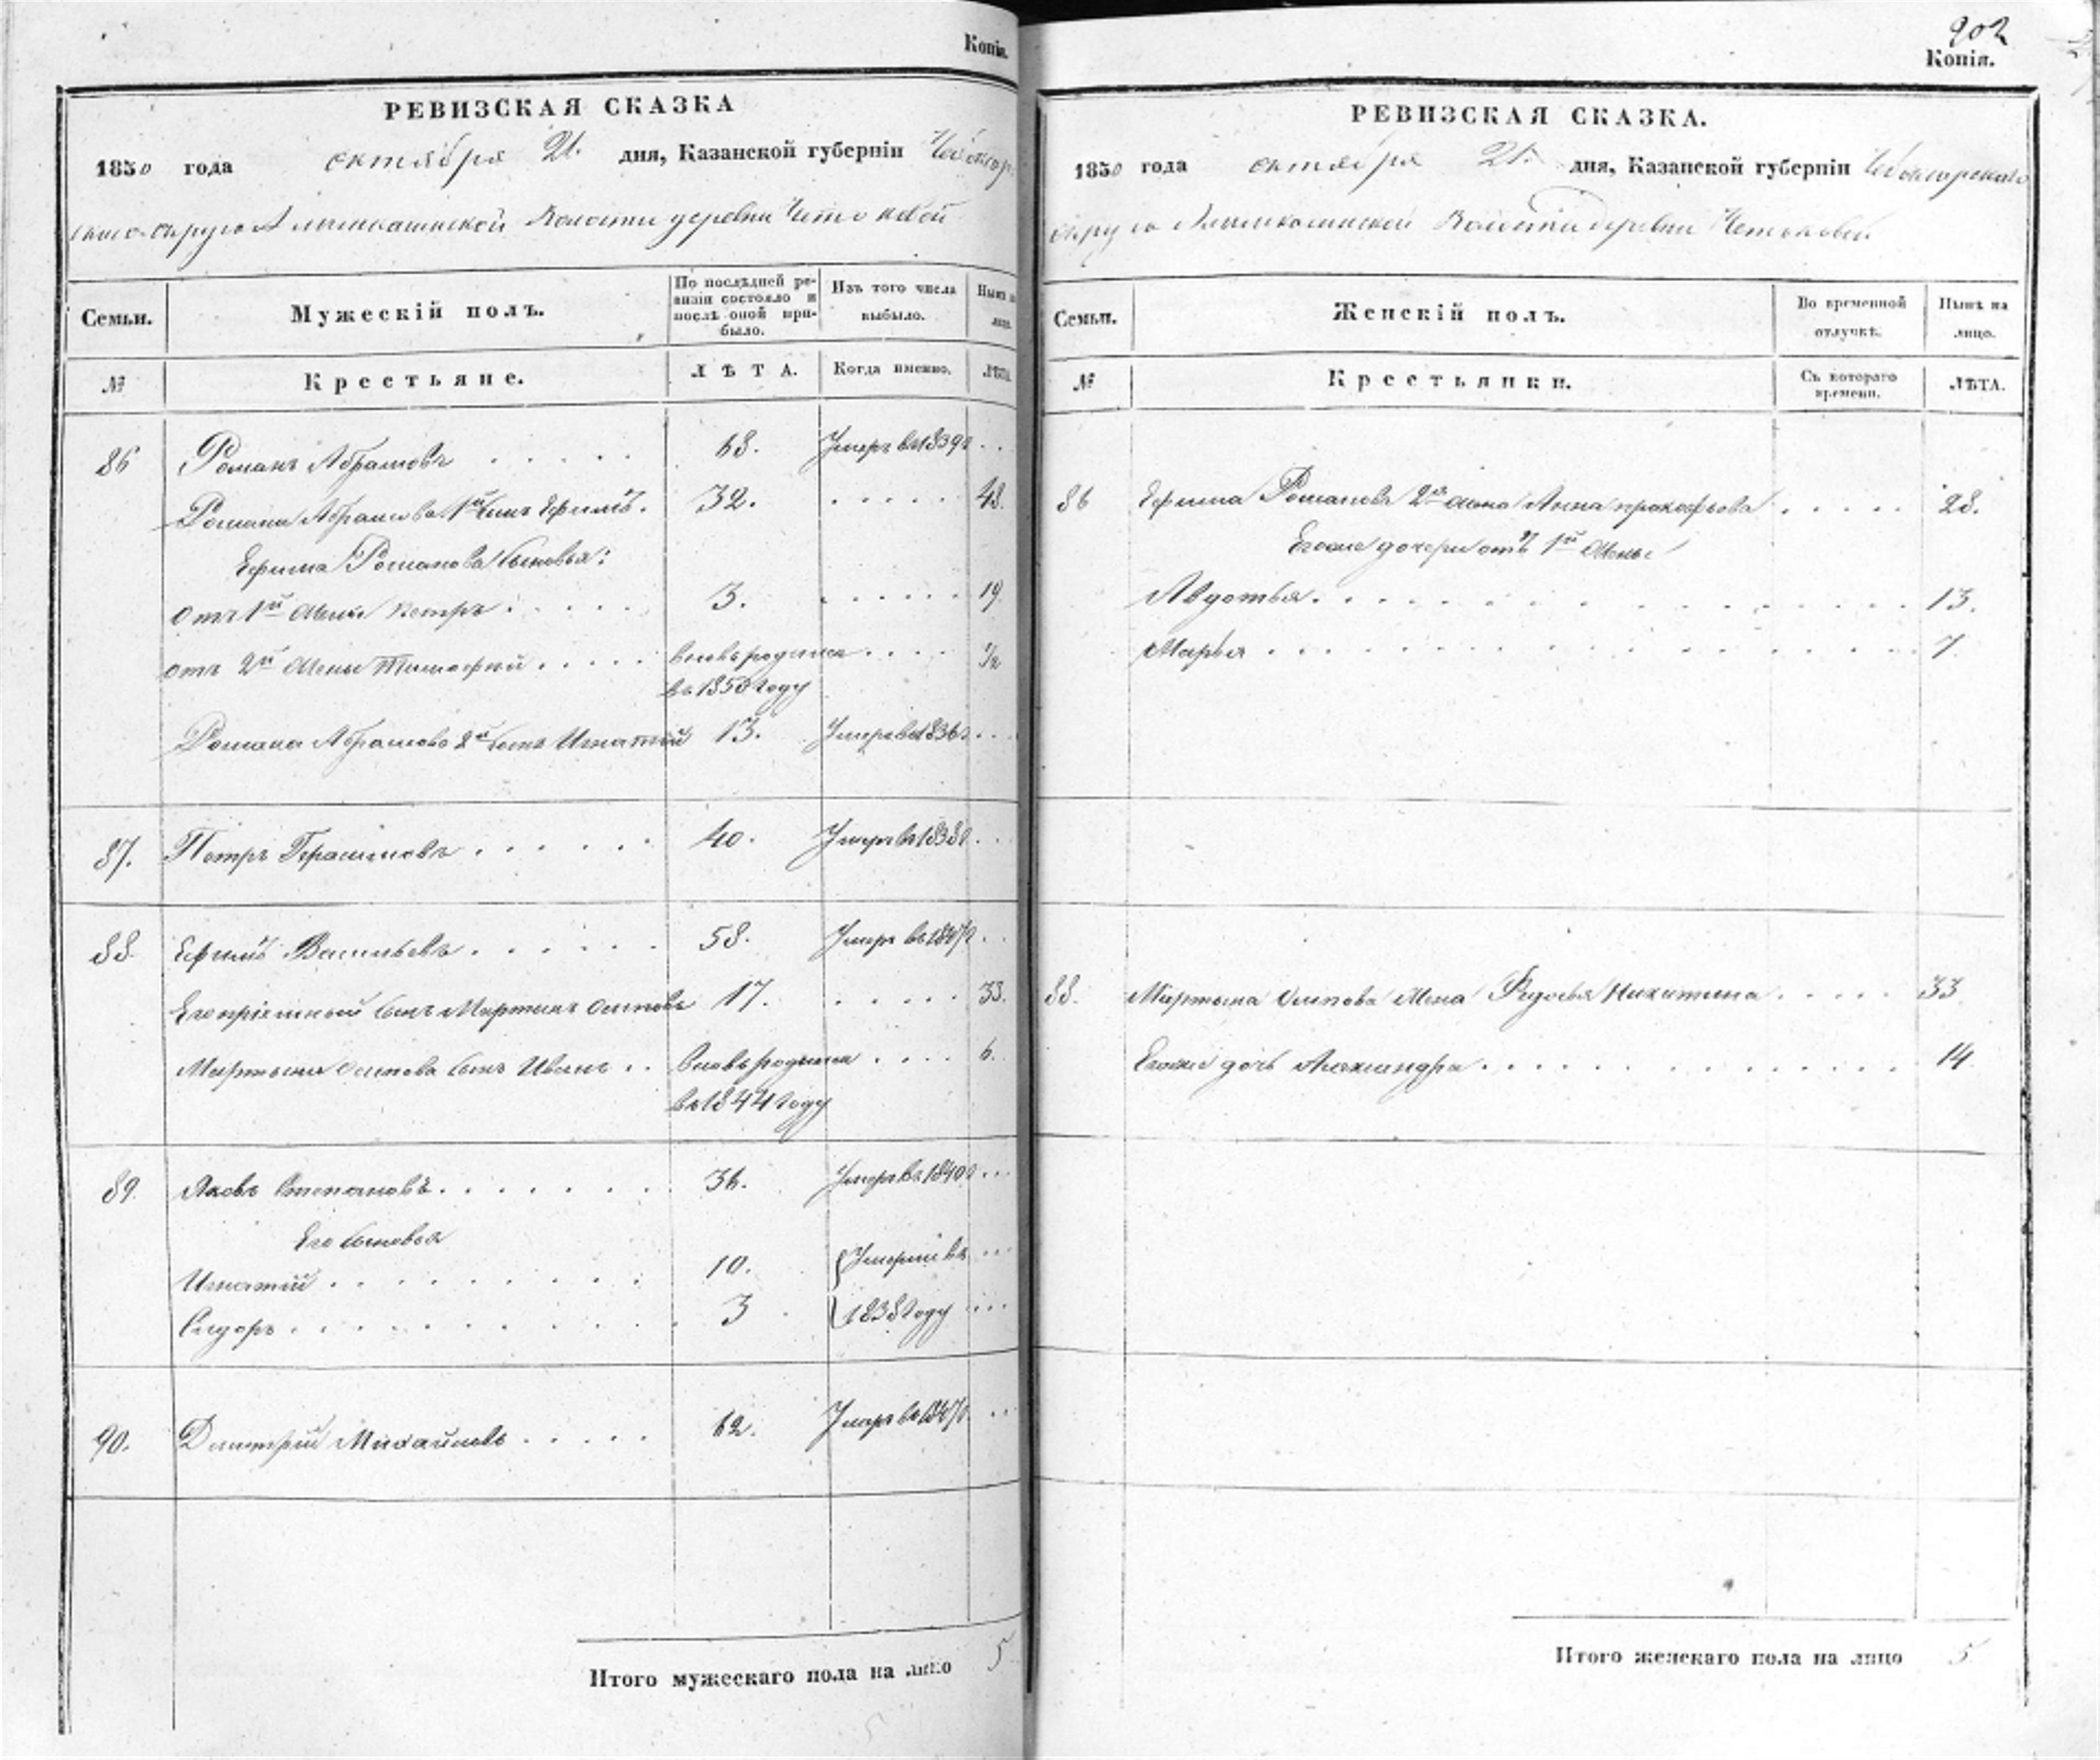 Копія.
РЕВИЗСКАЯ СКАЗКА
1850 года октября 21. дня, Казанской губерніи Чебоксар-
скаго округа Алымкасинской Волости деревни Четоковой
Семьи. Мужескій полъ. По послѣдней ревизіи состояло и послѣ оной прибыло. Изъ того числа выбыло. Нынѣ на лицо.
№ Крестьяне. ЛѢТА. Когда именно. ЛѢТА.
86 Романъ Абрамовъ 68. Умеръ въ 1839 г
Романа Абрамова 1й сынъ Ефимъ. 32. 48.
Ефима Романова сыновья:
отъ 1й жены Петръ 3. 19.
отъ 2й жены Тимофей вновь родился 1/2
въ 1850 году
Романа Абрамова 2й сынъ Игнатий 13. Умеръ въ 1836 г
87. Петръ Герасимовъ 40. Умеръ въ 1838 г
88 Ефимъ Васильевъ 58. Умеръ въ 1847 г
Его пріемный сынъ Мартынъ Осиповъ 17. 33.
Мартына Осипова сынъ Иванъ вновь родился 6.
въ 1844 году
89. Яковъ Степановъ 36. Умеръ въ 1840 г
Его сыновья
Игнатій 10. Умерли въ
Сидоръ 3 1838 году
90. Дмитрій Михайловъ 62. Умеръ въ 1847 г
Итого мужескаго пола на лицо 5
902
Копія.
РЕВИЗСКАЯ СКАЗКА.
1850 года октября 21. дня, Казанской губерніи Чебоксарскаго
округа Алымкасинской Волости деревни Четоковой
Семьи. Женскій полъ. Во временной отлучкѣ. Нынѣ на лицо.
№ Крестьянки. Съ котораго времени. ЛѢТА.
86 Ефима Романова 2я жена Анна Прокофьева 28.
Егоже дочери отъ 1й жены
Авдотья 13.
Марья 7
88. Мартына Осипова жена Федосья Никитина 33
Егоже дочь Александра 14
Итого женскаго пола на лицо 5